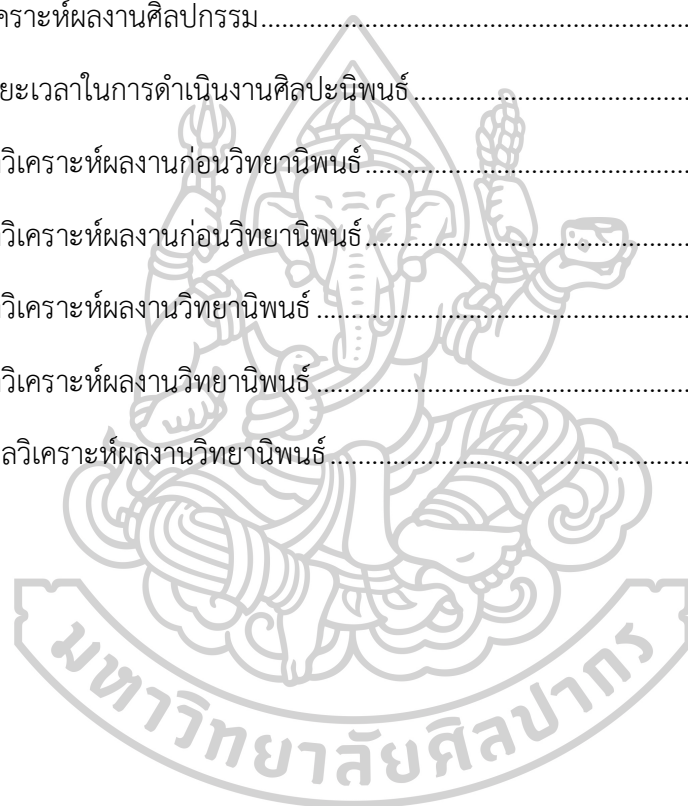 เคราะห์ผลงานศิลปกรรม................................................................
ยะเวลาในการดำเนินงานศิลปะนิพนธ์................................................
วิเคราะห์ผลงานก่อนวิทยานิพนธ์................................................
วิเคราะห์ผลงานก่อนวิทยานิพนธ์................................................
วิเคราะห์ผลงานวิทยานิพนธ์ ................................................
วิเคราะห์ผลงานวิทยานิพนธ์................................................
ลวิเคราะห์ผลงานวิทยานิพนธ์................................................
มหาวิทยาลัยศิลปากร